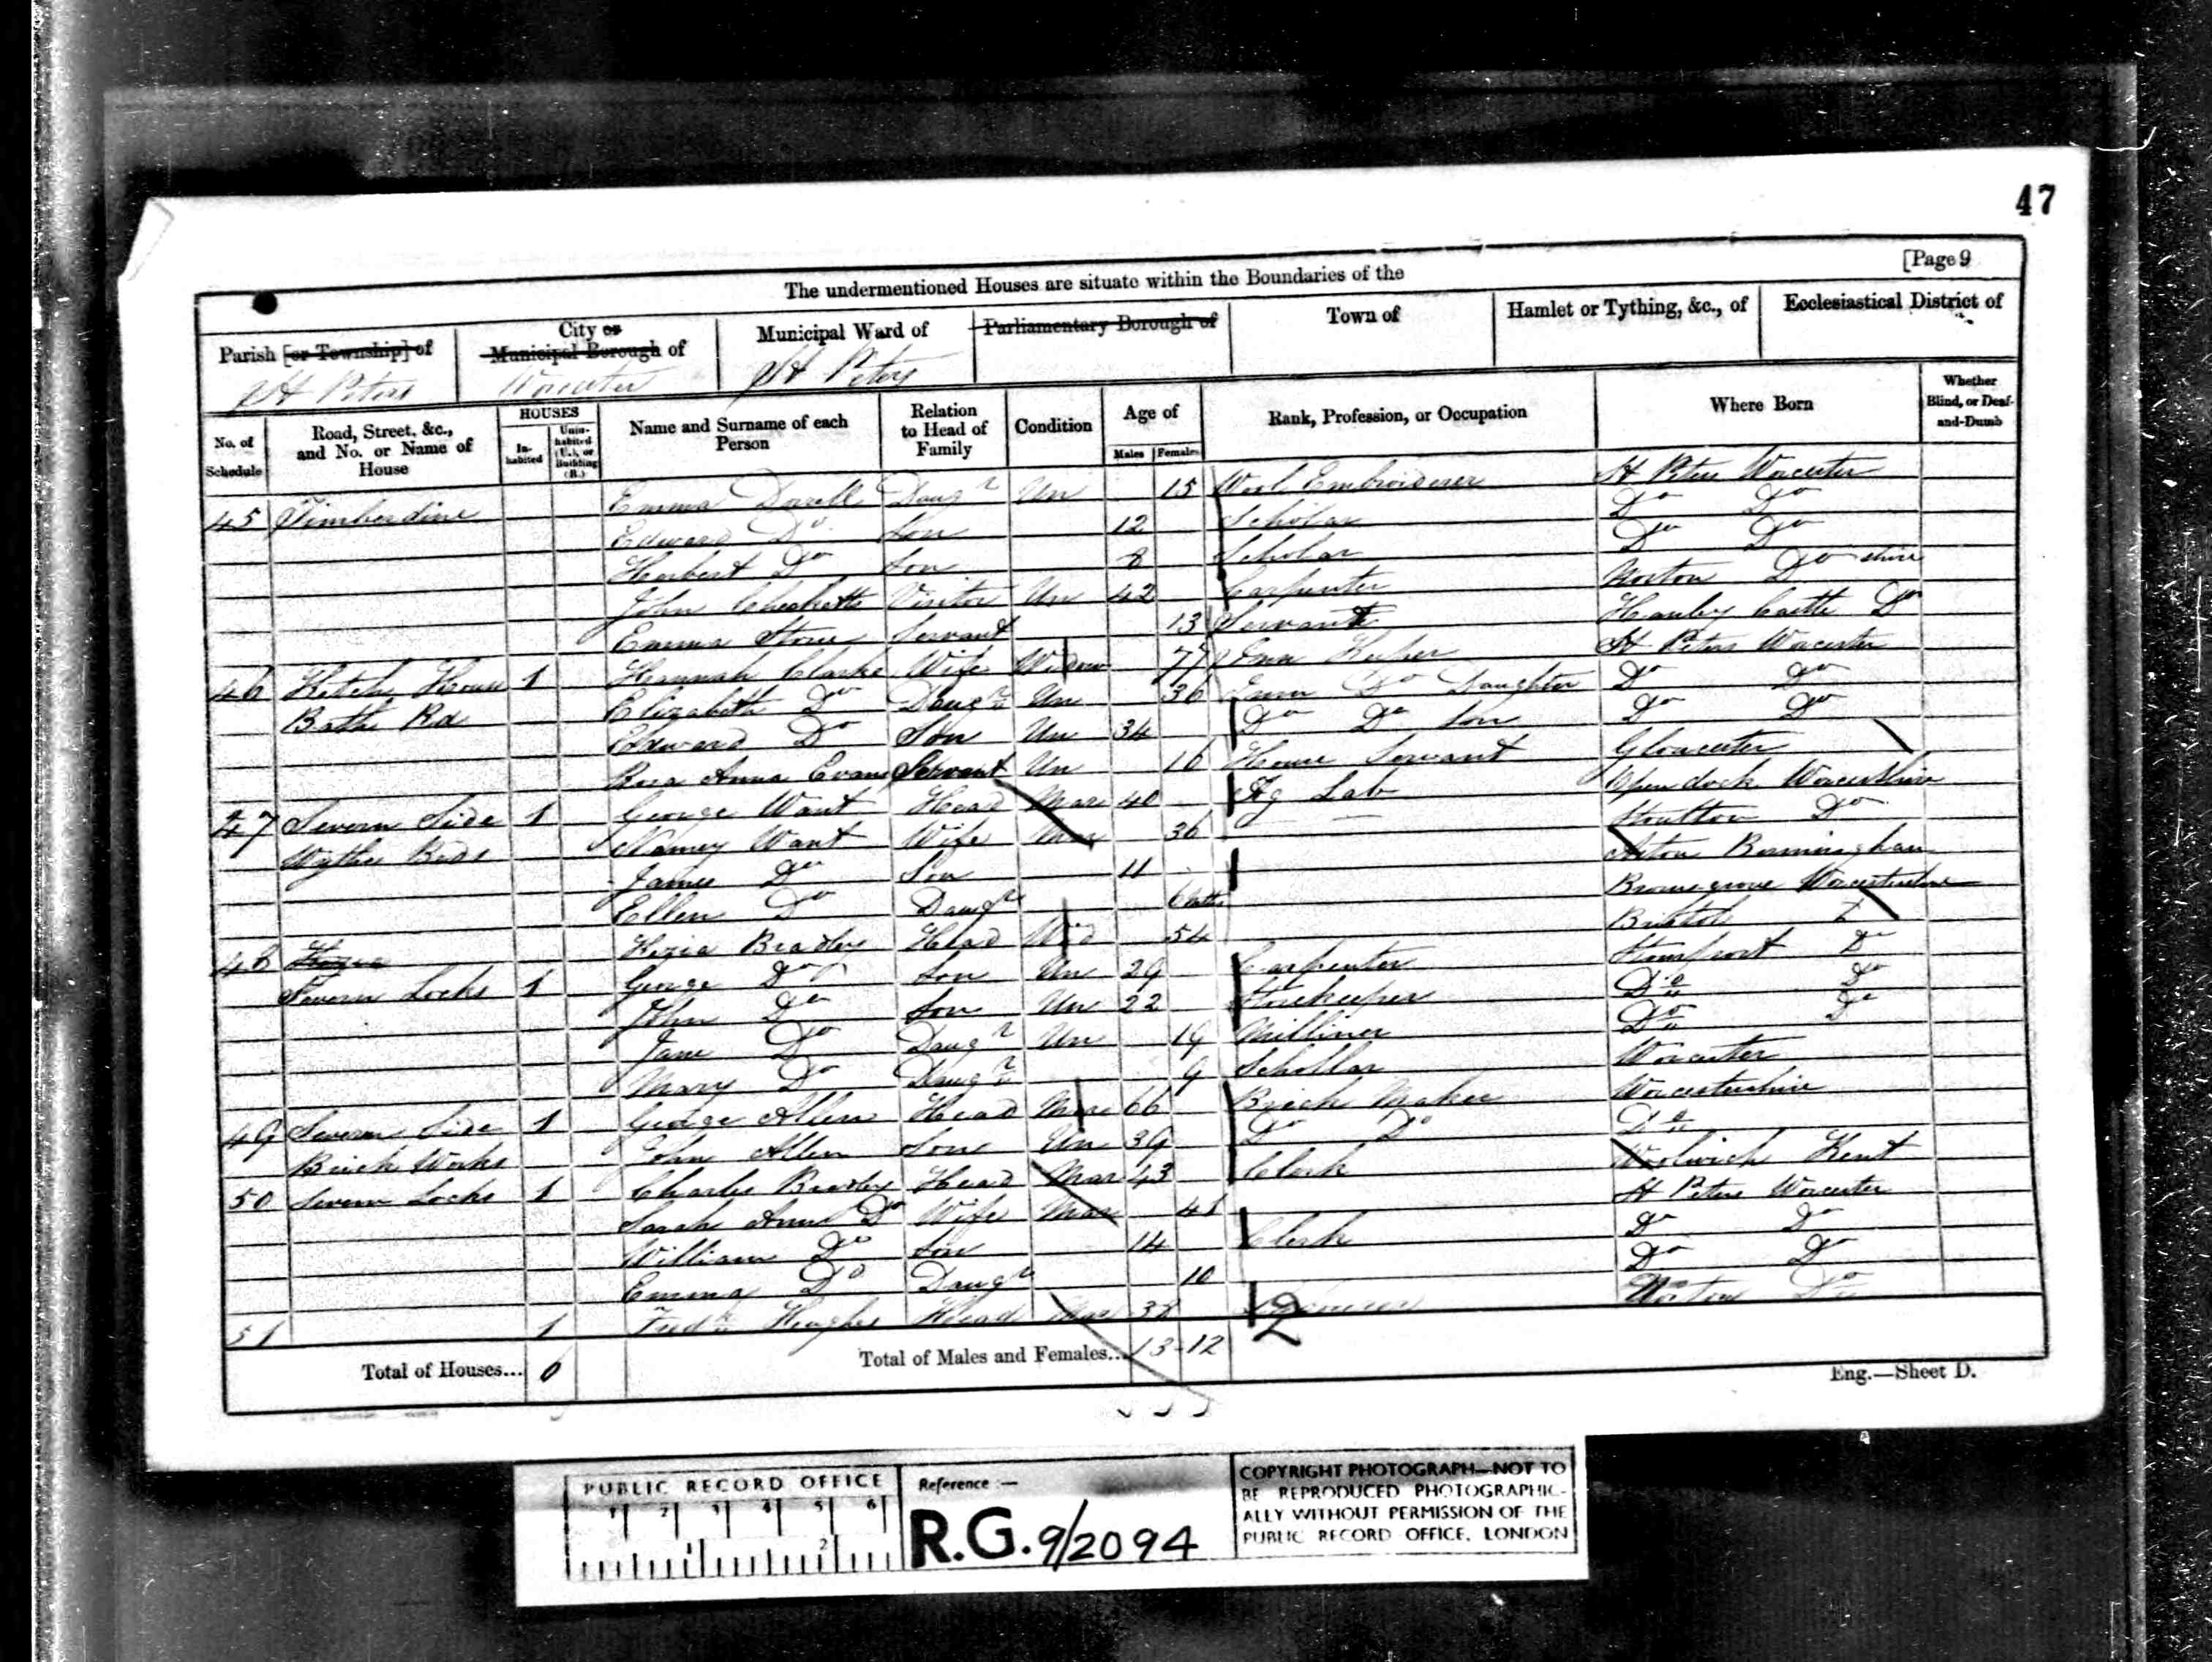 47
[Page 9
The undermentioned Houses are situate within the Boundaries of the
Parish [or Township] of City or Municipal Borough of Municipal Ward of Parliamentary Borough of Town of Hamlet or Tything, &c., of Ecclesiastical District of
St Peters Worcester St Peters
No. of Schedule Road, Street, &c., and No. or Name of House HOUSES Inhabited Uninhabited (U.), or Building (B.) Name and Surname of each Person Relation to Head of Family Condition Age of Males Females Rank, Profession, or Occupation Where Born Whether Blind, or Deaf-and-Dumb
45 Timberdine Emma Daugr Un 15 Wool Embroiderer St Peters Worcester
Edward Do Son 12 Scholar Do Do
Herbert Do Son 8 Scholar Do Do
John Visitor Un 42 Carpenter Norton Do shire
Emma Servant 13 Servant Hanley Castle Do
46 Ketch House 1 Hannah Clarke Wife Widow 77 Inn Keeper St Peters Worcester
Bath Rd Elizabeth Do Daugr Un 36 Do Daughter Do Do
Edward Do Son Un 34 Do Do Son Do Do
Rosa Anna Evans Servant Un 16 House Servant Gloucester
47 Severn Side 1 George Want Head Mar 40 Ag Lab Worcestshire
Wythe Beds Nancy Want Wife Mar 36 Stoulton Do
James Do Son 11 Aston Birmingham
Ellen Do Daugr 6 Mths Bromsgrove Worcestershire
48 Kezia Bradley Head Wid 54 Bristol
Severn Locks 1 George Do Son Un 29 Carpenter Stourport Do
John Do Son Un 22 Storekeeper Do Do
Jane Do Daugr Un 19 Milliner Do Do
Mary Do Daugr 9 Schollar Worcester
49 Severn Side 1 George Allen Head Mar 66 Brick Maker Worcestershire
Brick Works John Allen Son Un 39 Do Do Do
50 Severn Locks 1 Charles Bradley Head Mar 43 Clerk Woolwich Kent
Sarah Ann Do Wife Mar 41 St Peters Worcester
William Do Son 14 Clerk Do Do
Emma Do Daugr 10 Do Do
51 1 Fredk Hughes Head Mar 38 Norton Do
2
Total of Houses... 6 Total of Males and Females... 13 - 12
Eng.—Sheet D.
PUBLIC RECORD OFFICE
1 2 3 4 5 6
1 2
Reference :—
R.G. 9/2094
COPYRIGHT PHOTOGRAPH—NOT TO
BE REPRODUCED PHOTOGRAPHIC-
ALLY WITHOUT PERMISSION OF THE
PUBLIC RECORD OFFICE, LONDON